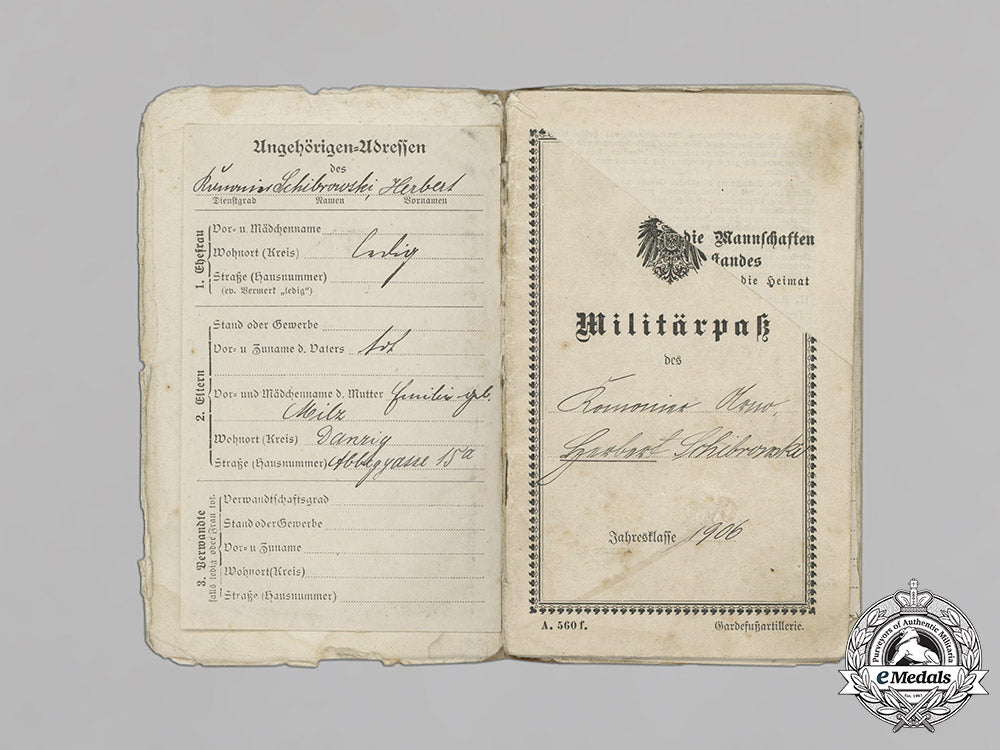 Angehörigen-Adressen
des
Kanonier Schibrowski, Herbert
Dienstgrad Namen Vornamen
1. Ehefrau
Vor- u. Mädchenname
Wohnort (Kreis) ledig
Straße (Hausnummer)
(ev. Vermerk „ledig“)
2. Eltern
Stand oder Gewerbe
Vor- u Zuname d. Vaters tot
Vor- und Mädchenname d. Mutter Emilie geb.
Milz
Wohnort (Kreis) Danzig
Straße (Hausnummer) Abbeggasse 15a
3. Verwandte
falls ledig oder Frau tot.
Verwandtschaftsgrad
Stand oder Gewerbe
Vor- u Zuname
Wohnort (Kreis)
Straße (Hausnummer)
die Mannschaften
standes
die Heimat
Militärpaß
des
Kanonier Arno,
Herbert Schibrowski
Jahresklasse 1906
A. 560 f. Gardefußartillerie.
Purveyors of Authentic Militaria
eMedals